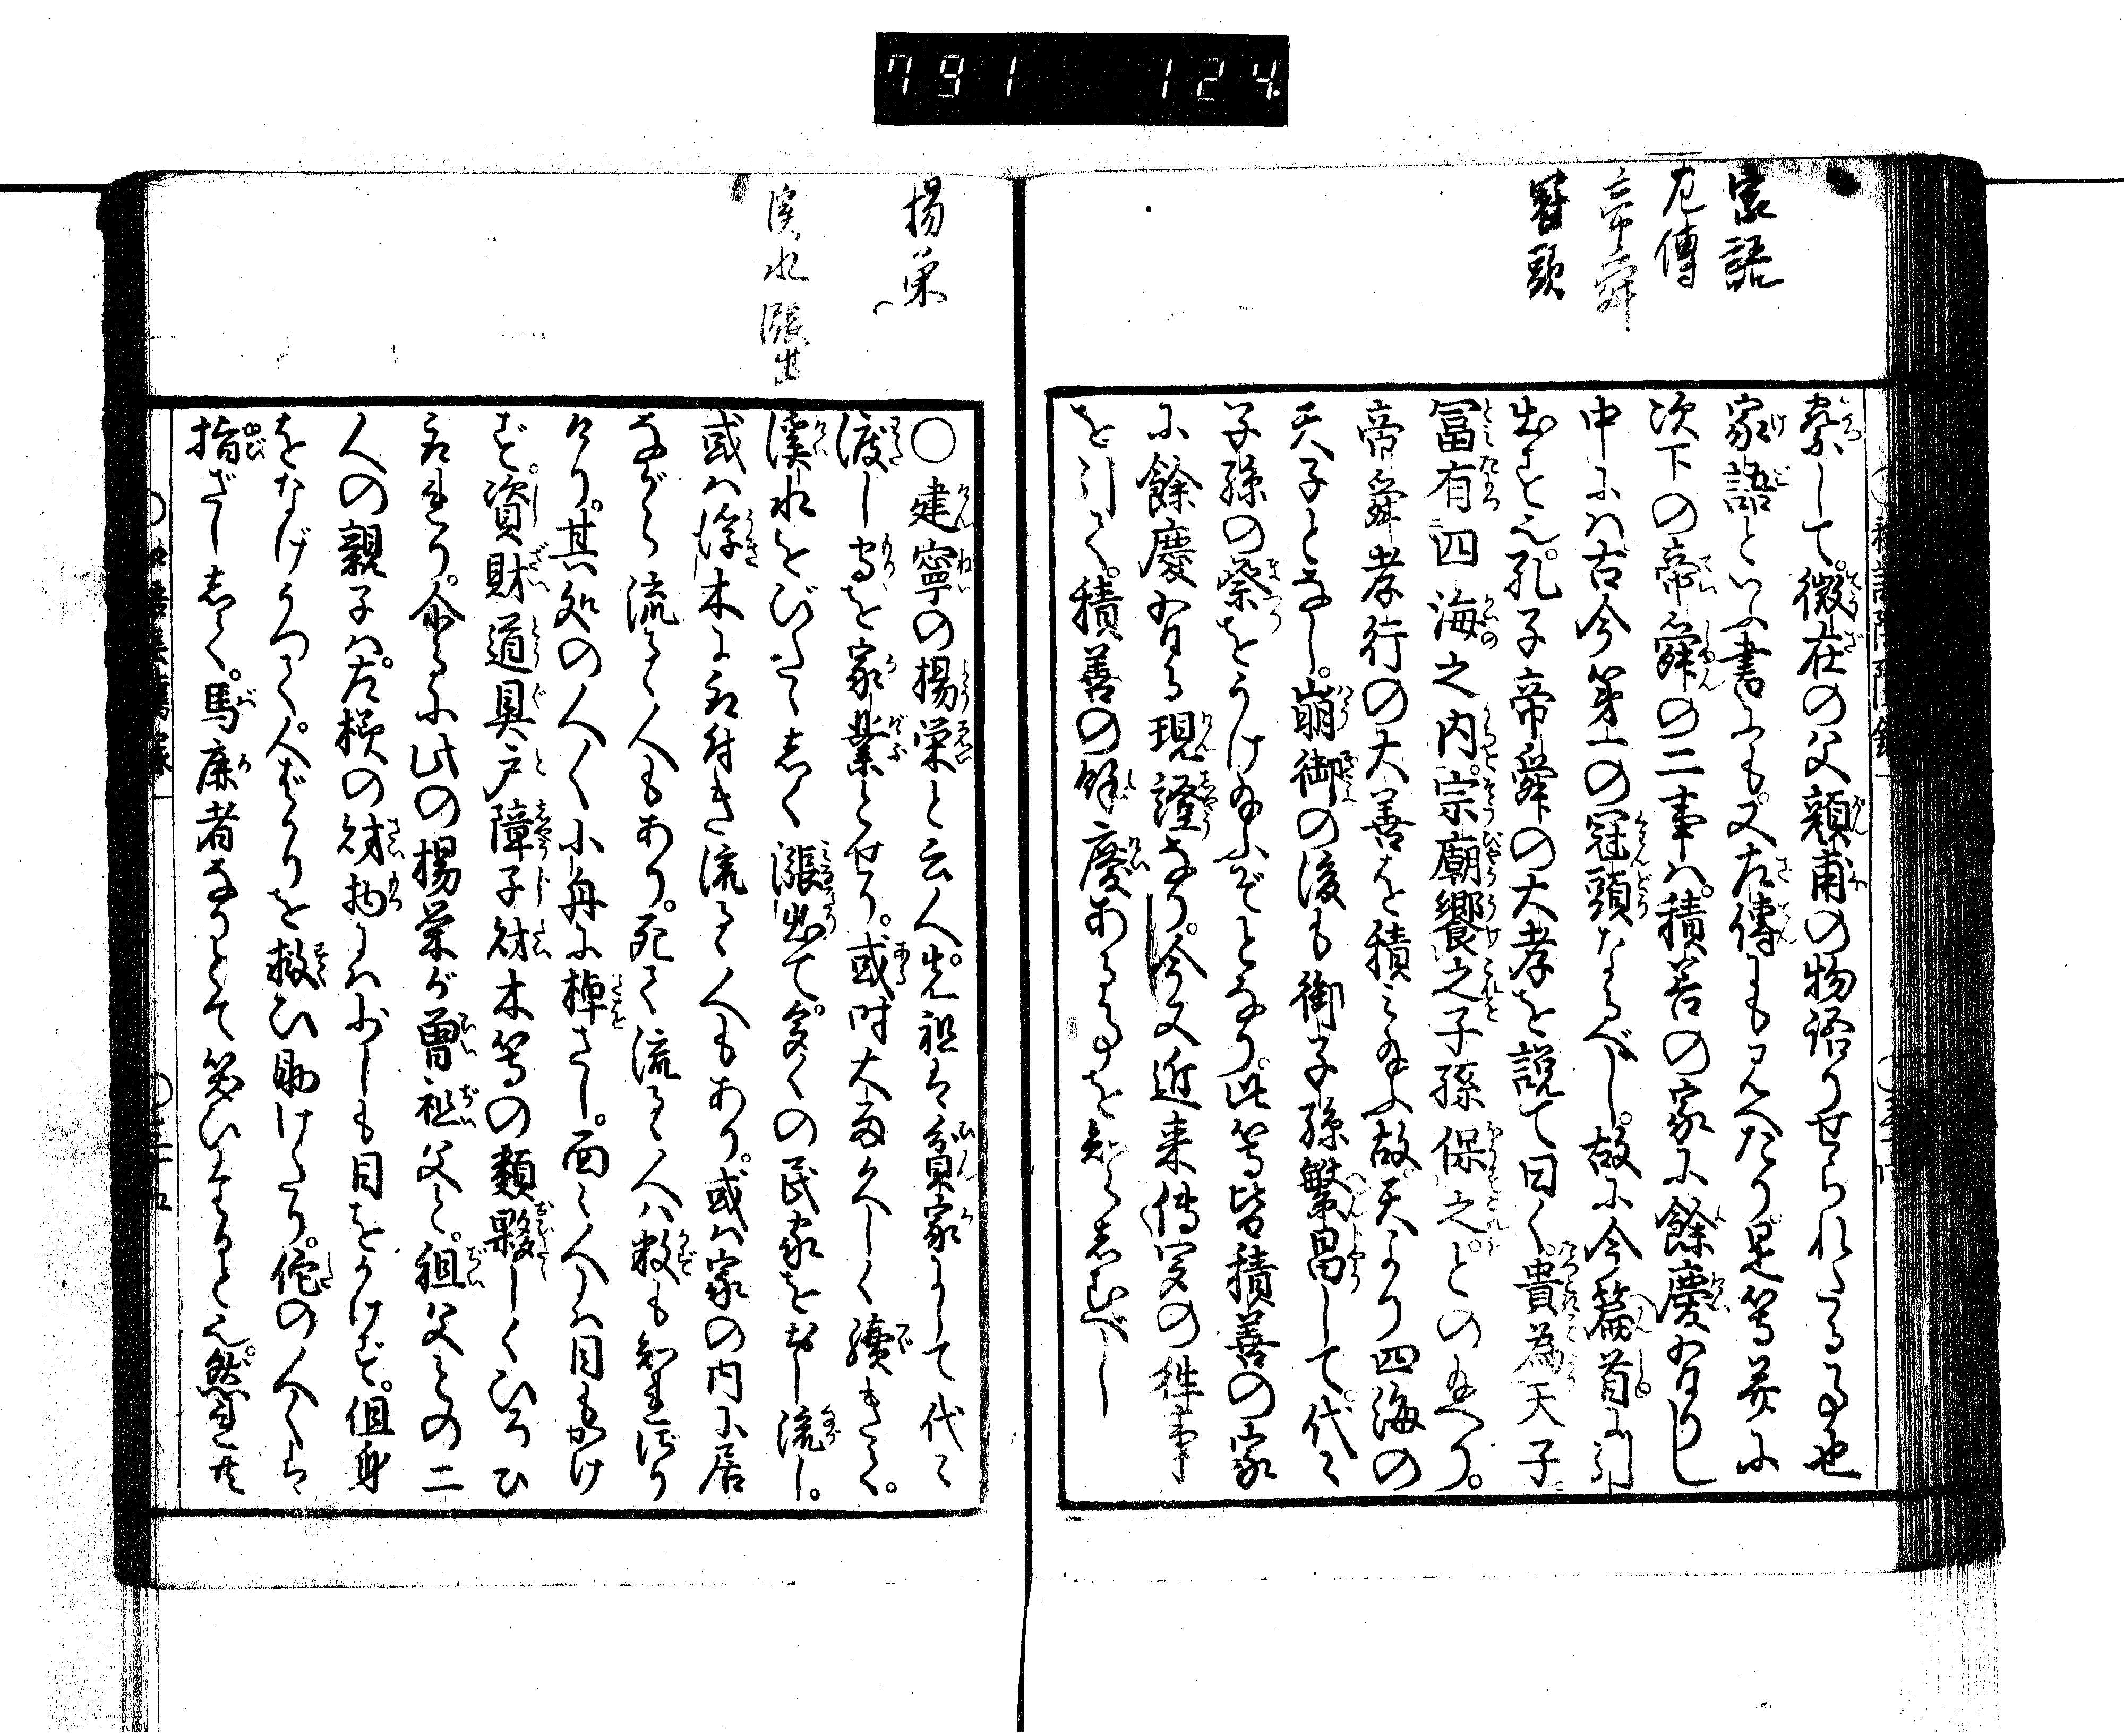 791 124
家語
左傳
帝舜
冠頭
察して。微在の父顔甫の物語りせられたる事也
家語といふ書にも。又左傳にも見へたり。是等并に
次下の帝舜の二事ハ。積善の家に餘慶有りし
中にハ古今第一の冠頭なるべし。故に今篇首に引
出すと也。孔子帝舜の大孝を説て曰く。貴為天子。
冨有四海之内。宗廟饗之子孫保之。とのたまへり。
帝舜孝行の大善を積ミ給ふ故。天より四海の
天子となし。崩御の後も御子孫繁昌して。代々
子孫の祭をうけ給ふぞとなり。此等皆積善の家
に餘慶有る現證なり。今又近来傳寔の徃事
を引て。積善の餘慶ある事を知らしむべし
揚栄
渓水漲出
〇建寧の揚栄と云人。先祖は貧家にして代々
渡し守を家業とせり。或時大雨久しく續きて。
渓水をびたゝしく漲出て。多くの民家をおし流し。
或ハ浮木に取付き流るゝ人もあり。或ハ家の内に居
ながら流るゝ人もあり。死て流るゝ人ハ数も知れざり
けり。其処の人〱小舟に棹さし。面々人にハ目もかけ
ず。資財道具戸障子材木等の類夥しくひろひ
取れり。余るに此の揚栄が曽祖父と。祖父との二
人の親子ハ。左様の財物にハ少しも目をかけず。但身
をなげうつて。人ばかりを救ひ助けたり。佗の人〱は
指ざしして。馬鹿者なりとて笑ひすると也。然れ共